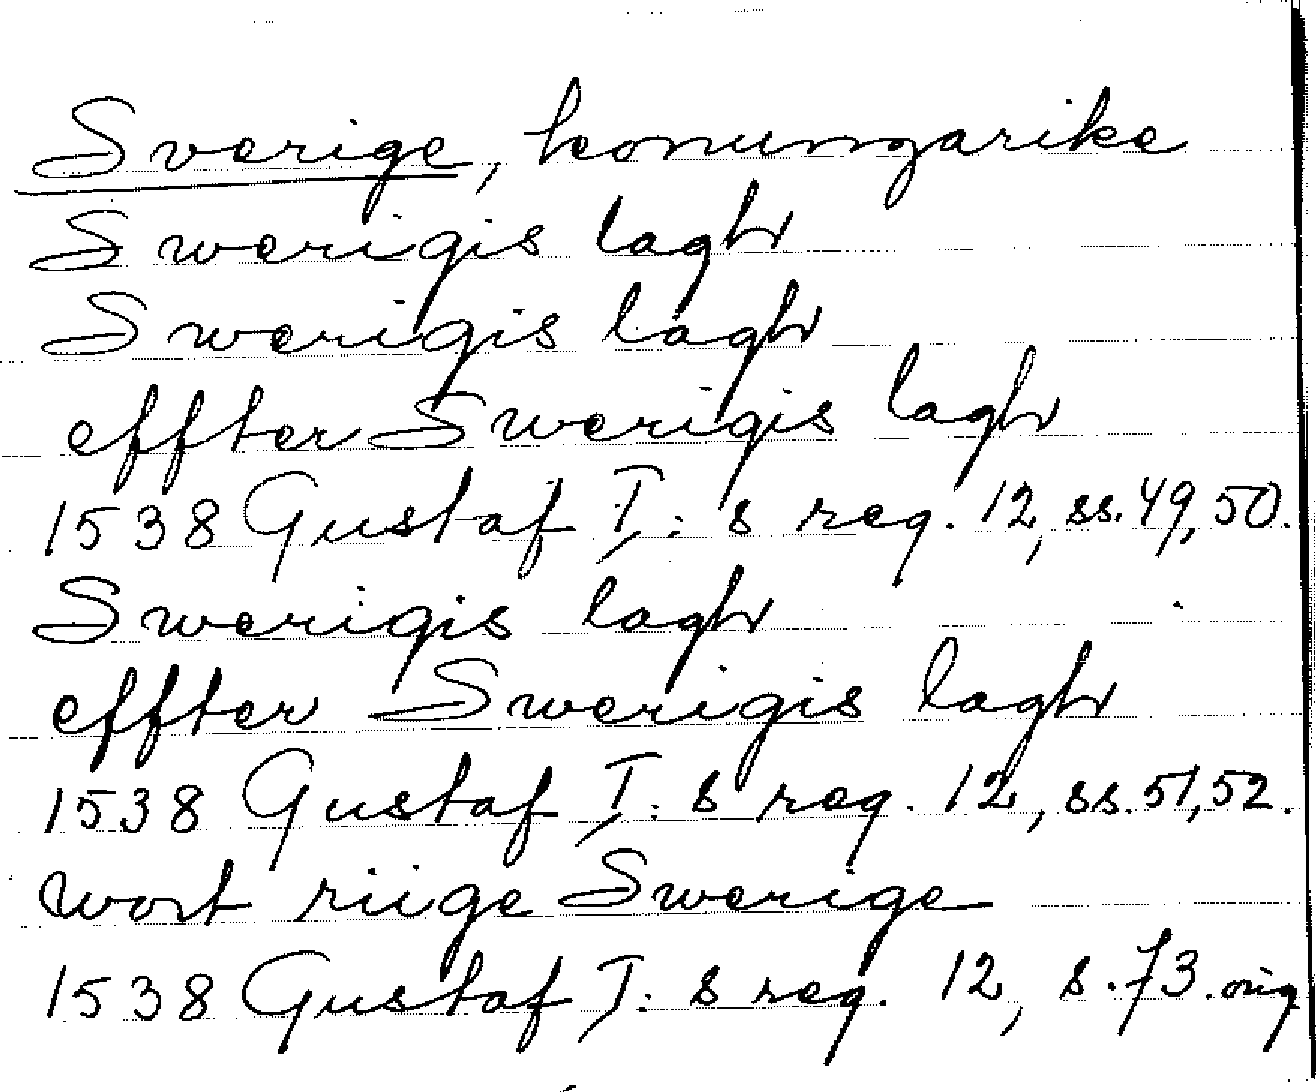 Sverige, konungarike
Swerigis lagh
Swerigis lagh
effter Swerigis lagh
1538 Gustaf I:s reg. 12, ss. 49, 50.
Swerigis lagh
effter Swerigis lagh
1538 Gustaf I:s reg. 12, ss. 51, 52.
wort riige Swerige
1538 Gustaf I:s reg. 12, s. 73. orig